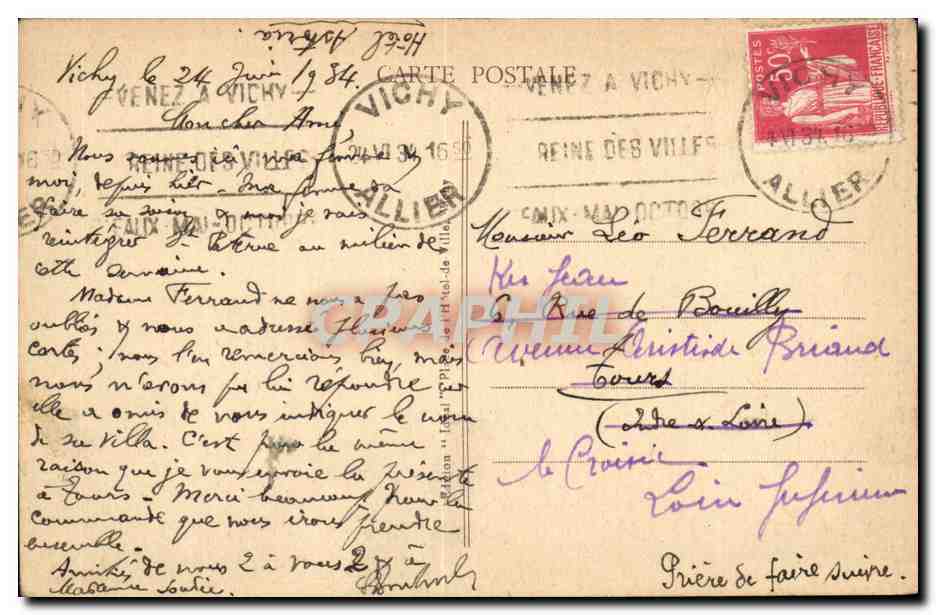 Hôtel Astoria.
Vichy le 24 Juin 1934.
CARTE POSTALE
VENEZ A VICHY
REINE DES VILLES
EAUX-MAI-OCTOBRE
VICHY
24 VI 34 16 30
ALLIER
VENEZ A VICHY
REINE DES VILLES
EAUX-MAI-OCTOBRE
POSTES
50c
REPUBLIQUE FRANÇAISE
VICHY
ALLIER
Mon cher Ami,
Nous sommes ici ma femme &
moi, depuis hier. Ma femme va
faire sa & moi je vais
réintégrer au milieu de
cette semaine.
Madame Ferrand ne nous a pas
oubliés & nous a adressé plusieurs
cartes; nous l'en remercions bien, mais
nous n'avons pu lui répondre car
elle a omis de nous indiquer le nom
de sa villa. C'est pour la même
raison que je vous envoie la présente
à Tours. Merci beaucoup pour la
commande que nous irons prendre
ensemble.
Amitiés de nous 2 à vous 2 & à
Madame
Monsieur Leo Ferrand
Ker Jean
6 Rue de Bouilly
Avenue Aristide Briand
Tours
(Indre & Loire)
le Croisic
Loire Inférieure
Prière de faire suivre.
Place de l'Hôtel-de-Ville, Vichy
CPAPHIL